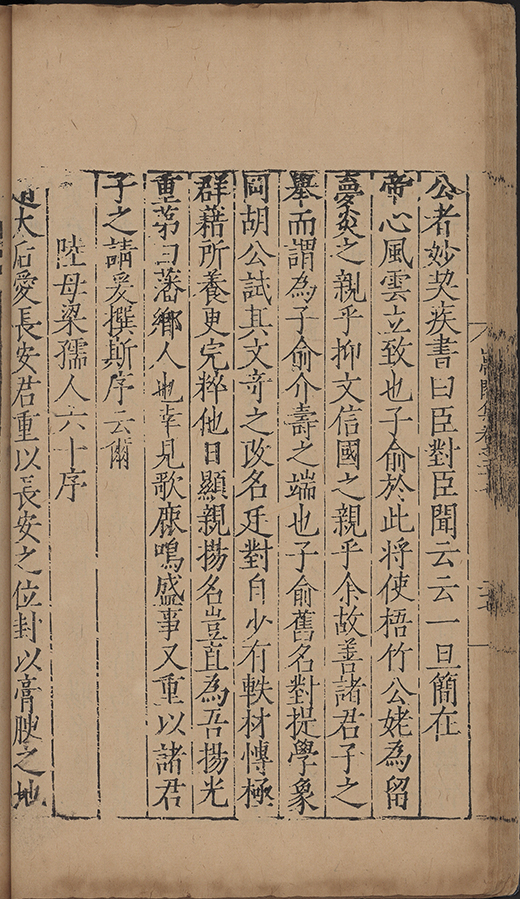 公者妙契疾書曰臣對臣聞云云一旦簡在
帝心風雲立致也子俞於此将使梧竹公姥為留
夢炎之親乎抑文信國之親乎余故善諸君子之
舉而謂為子俞介壽之端也子俞舊名對提學象
岡胡公試其文竒之改名廷對自少有軼材愽極
群藉所養更完粹他日顯親揚名豈直為吾揚光
重第曰藩鄉人也幸見歌鹿鳴盛事又重以諸君
子之請爰撰斯序云爾
陸母梁孺人六十序
趙太后愛長安君重以長安之位封以膏腴之地